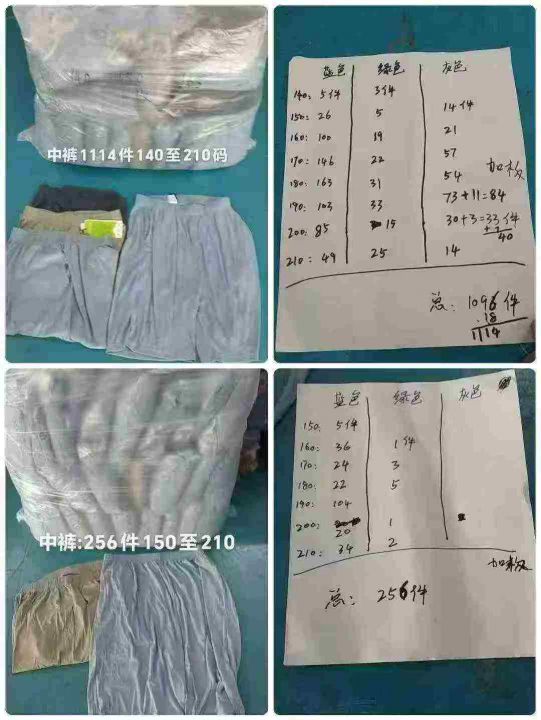 中裤1114件140至210码
蓝色 绿色 灰色
140: 5件 3件
150: 26 5 14件
160: 100 19 21
170: 146 22 57
180: 163 31 54 加板
190: 103 33 73+11=84
200: 85 15 30+3=33件
+7
40
210: 49 25 14
总: 1096件
18
1114
中裤:256件150至210
蓝色 绿色 灰色
150: 5件
160: 36 1件
170: 24 3
180: 22 5
190: 104
200: 20 1
210: 34 2
加板
总: 256件